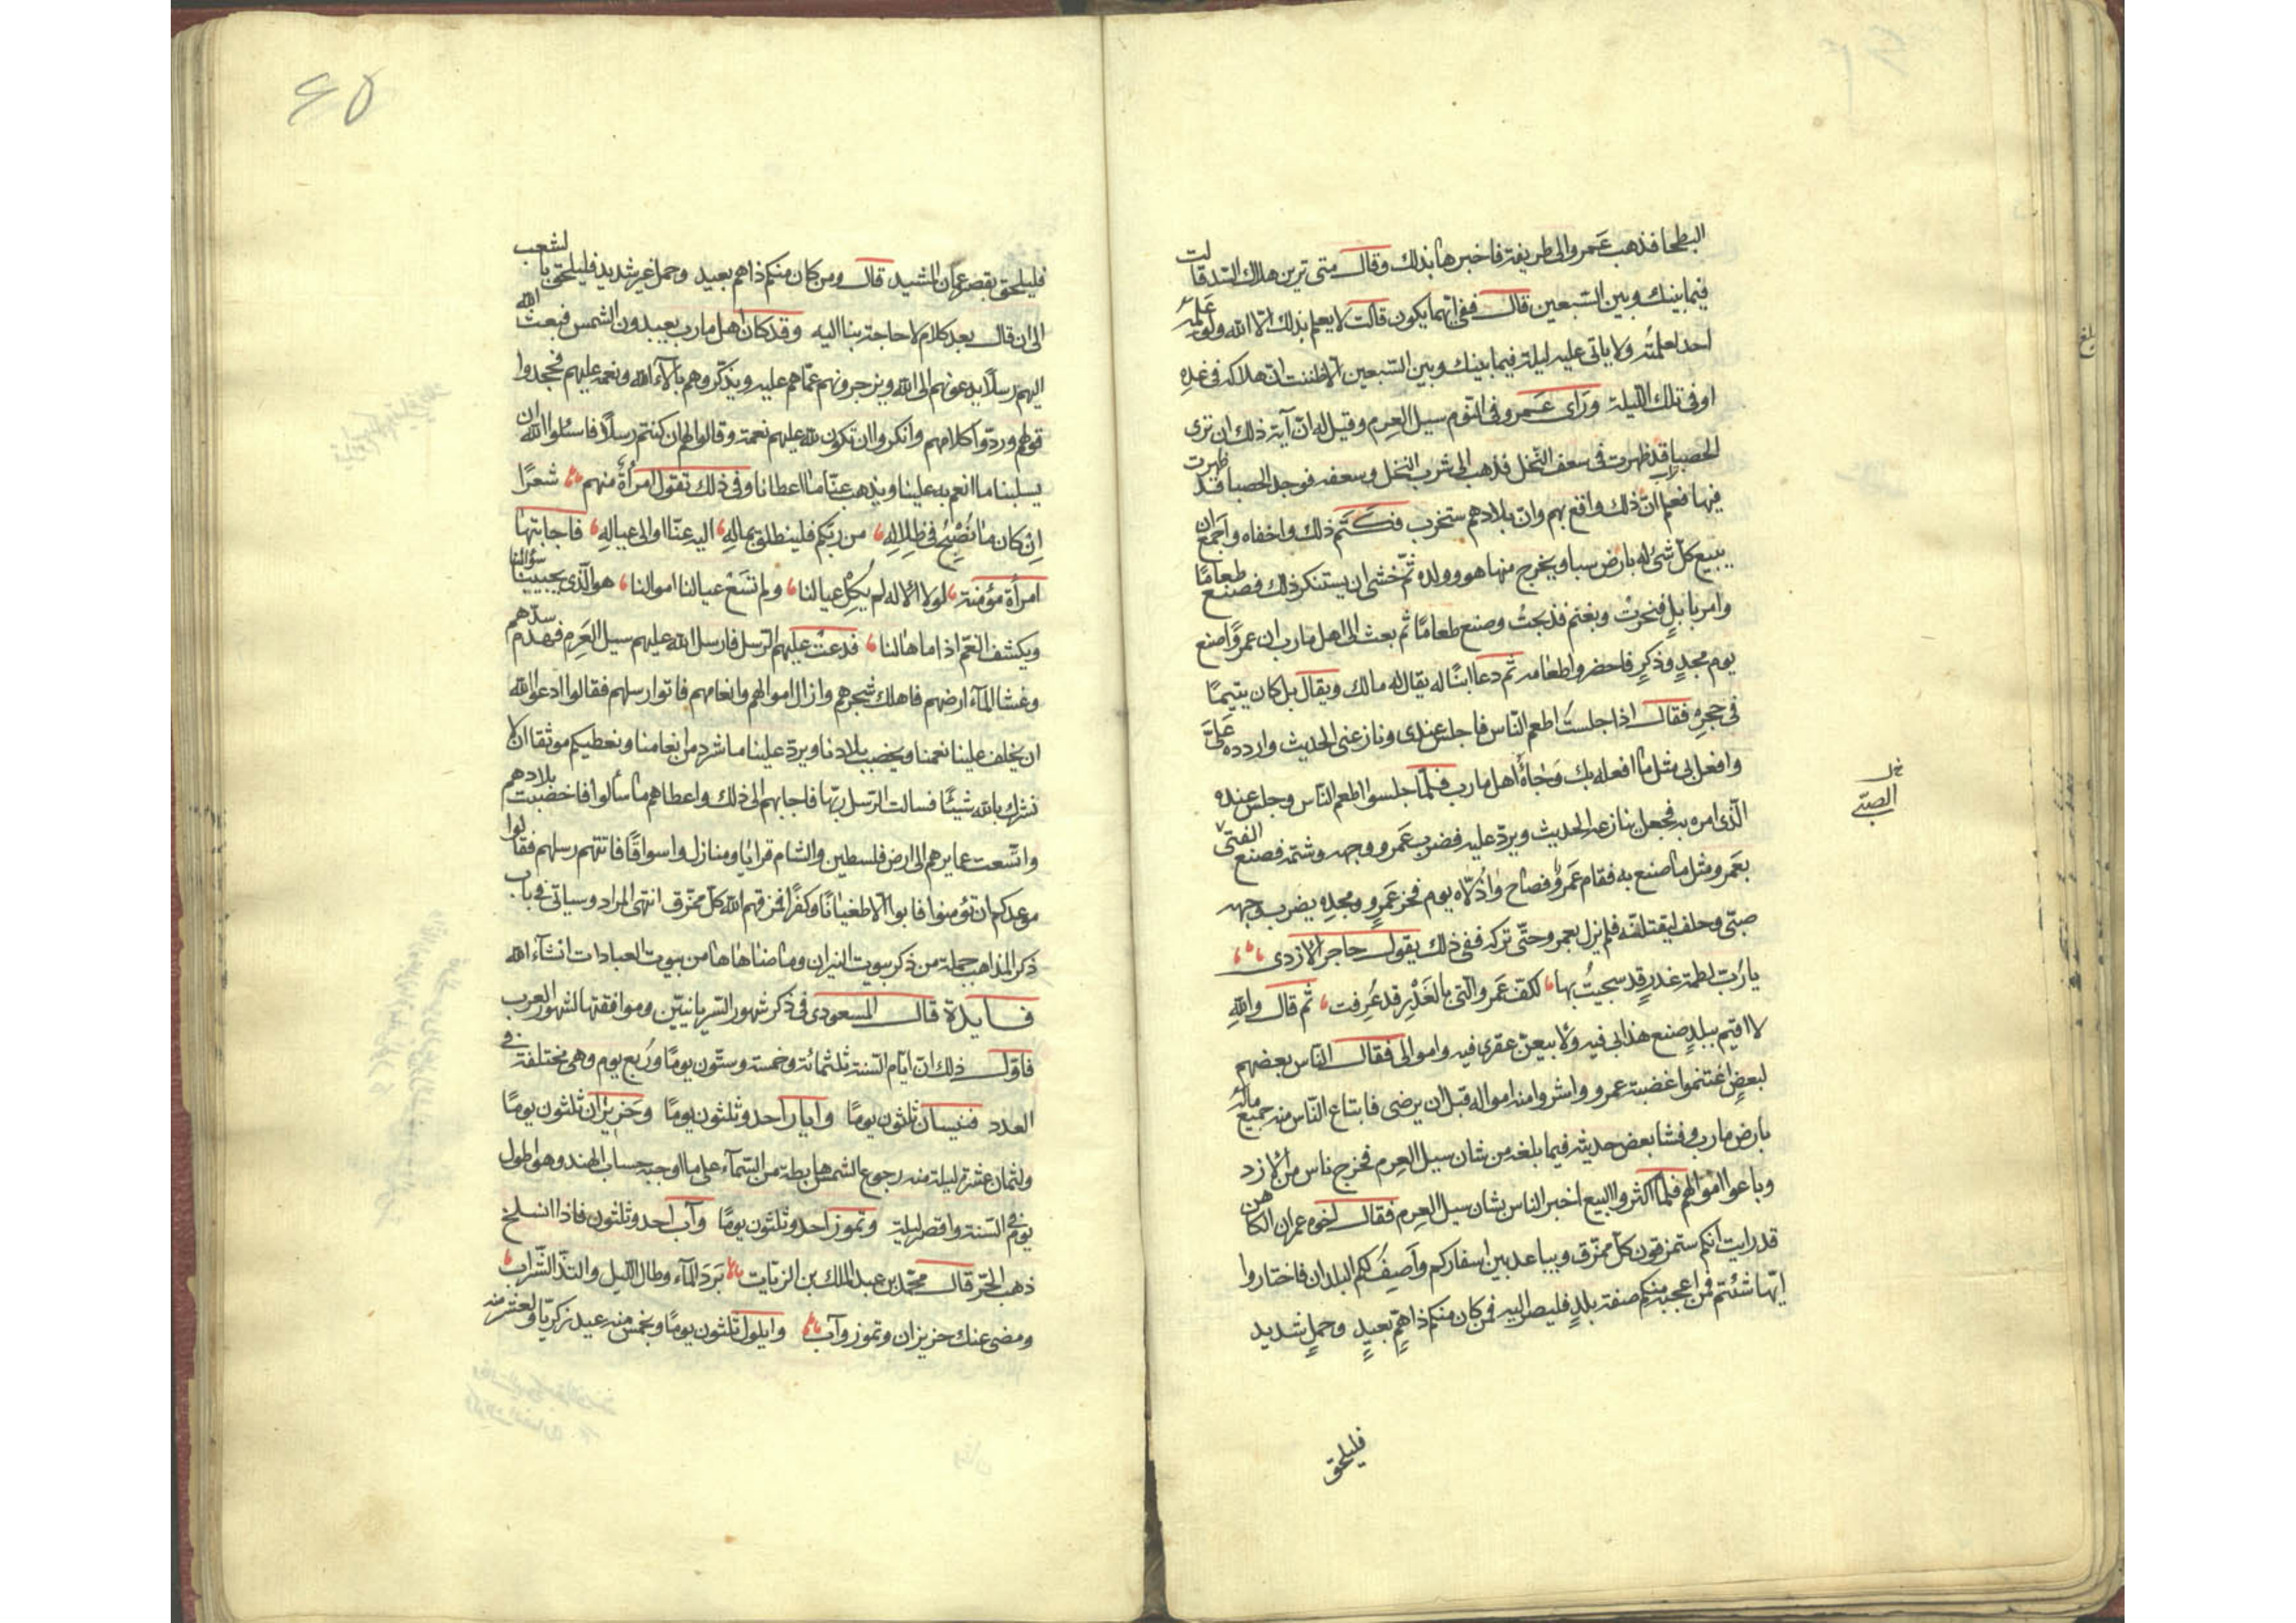 البطحا فذهب عَمرو الى طريفة فاخبرها بذلك وقال متى ترين هلاك السد قالت
فيما بينك وبين السّبعين قال ففى ايّها يكون قالت لا يعلم بذلك الّا الله ولو عَلِمَهُ
احد لعلمتُه ولا ياتى عليه ليلة فيما بينك وبين السّبعين الّا ظننت انّ هلاكه فى غدِهِ
او فى تلك الليلة ورَاى عَمرو فى النّوم سيل العرم وقيل له انّ آية ذلك ان ترى
الحصبا قد ظهرت فى سعف النّخل فذهب الى شرب النخل وسعفه فوجد الحصبا قد ظهرت
فيها فعلم انّ ذلك واقع بهم وان بلادهم ستخرب فكَتَم ذلك واخفاه واجمَعَ ان
يبيع كلّ شئ له بارض سبا ويخرج منها هو وولده ثمّ خشى ان يستنكر ذلك فصنع طعامًا
وامر بابلٍ فنحرتْ وبغنم فذبحتْ وصنع طعامًا ثم بعث الى اهل مارب ان عمروًا صنع
يوم مجدٍ وذكرٍ فاحضروا طعامه ثم دعا ابنًا له يقال له مالك ويقال بل كان يتيمًا
فى حجرِه فقال اذا جلستُ اطعم النّاس فاجلس عندى ونازعنى الحديث واردده عَلَيَّ
وافعل بى مثل ما افعله بك وَجاءَ اهل مارب فلمّا جلسوا اطعم النّاس وجلس عنده
الّذى امره به فجعل ينازعه الحديث ويردّ عليه فضرب عَمرو وجهه وشتمه فصنع الفتى
بعَمرو مثل ما صنع به فقام عَمرو فصاح واذُلّاه يوم فخر عَمرٍو ومجدِه يضرب وجهه
صبىّ وحلف ليقتلنّه فلم يزل بعمرو حتّى تركه ففى ذلك يقول حاجر الازدى
يا رُبّ لطمة غدرٍ قد سجيتُ بها لكفّ عَمرو الّتى بالغَدْرِ قد عُرِفت ثم قال واللهِ
لا اقيم ببلدٍ صنع هذا بى فيه ولا بيعنّ عقرى فيه واموالى فقال الناس بعضهم
لبعضٍ اغتنموا غضبة عمرو واشتروا منه امواله قبل ان يرضى فابتاع النّاس منه جميع مالَهُ
بارض مارب وفشا بعض حديثه فيما بلغه من شان سيل العرم فخرج ناس من الازد
وباعوا اموالهم فلمّا اكثروا البيع اخبر الناس بشان سيل العرم فقال اخوه عمران الكاهن
قد رايت انكم ستمزقون كلّ ممزّق ويباعد بين اسفاركم وَاَصِفُ لكم البلدان فاختاروا
ايّها شئتم فمن اعجبه منكم صفة بلدٍ فليصر اليه فمن كان منكم ذا همٍّ بعيدٍ وحملٍ شديد
فليلحق
خل
الصبّى
بلغ
٤٥
فليلحق بقصر عمان المشيد قال ومن كان منكم ذا همّ بعيد وحمل غير شديد فليلحق بالشعب
الى ان قال بعد كلام لا حاجة بنا اليه وقد كان اهل مارب يعبدون الشمس فبعث الله
اليهم رسلًا يدعونهم الى الله ويزجرونهم عمّا هم عليه ويذكّروهم بآلاء الله ونعمه عليهم فجحدوا
قولهم وردّوا كلامهم وانكروا ان تكون لله عليهم نعمة وقالوا لهم ان كنتم رسلًا فاسئلوا الله ان
يسلبنا ما انعم به علينا ويذهب عنّا ما اعطانا وفى ذلك تقول امرأة منهم شعرًا
اِنْ كان ما نُصْبِحُ فى ظِلالِهِ من ربّكم فلينطلق بمالِهِ اليه عنّا والى عيالِهِ فاجابتها
امرأة مؤمنة لولا الاله لم يُكِلْ عيالنا ولم تسَعْ عيالنا اموالنا هو الّذى يجيبنا سؤالنا
ويكشف الغمّ اذا ما هالنا فدعتْ عليهم الرّسل فارسل الله عليهم سيل العَرِم فهدم سدّهم
وغشا المآء ارضهم فاهلك شجرهم وازال اموالهم وانعامهم فاتوا رسلهم فقالوا ادعوا الله
ان يخلف علينا نعمنا ويخصب بلادنا ويردّ علينا ما شرد من انعامنا ونعطيكم موثقا ان لا
نشرك بالله شيئًا فسالت الرّسل ربّها فاجابهم الى ذلك واعطاهم ما سألوا فاخصبت بلادهم
واتّسعت عمايرهم الى ارض فلسطين والشام قرايا ومنازل واسواقًا فاتتهم رسلهم فقالوا
موعدكم ان تؤمنوا فابوا الّا طغيانًا وكفرًا فمزقهم الله كلّ ممزّق انتهى المراد وسياتى فى باب
ذكر المذاهب جملة من ذكر بيوت النيران وما ضاهاها من بيوت العبادات انشآء الله
فايدة قال المسعودى فى ذكر شهور السّريانيّين وموافقتها لشهور العرب
فاوّل ذلك انّ ايّام السّنة ثلثمائة وخمسة وستّون يومًا ورُبع يوم وهى مختلفة فى
العدد فنيسان ثلثون يومًا وايار احد وثلثون يومًا وحَزيران ثلثون يومًا
ولثمان عشرة ليلة منه رجوع الشمس هابطة من السّمآء على ما اوجبه حساب الهند وهو اطول
يوم فى السّنة واقصر ليلة وتموز احد وثلثون يومًا وآب احد وثلثون فاذا انسلخ
ذهب الحرّ قال محمّد بن عبد الملك بن الزيّات بَرَدَ المآء وطال اللّيل والتذّ الشّراب
ومضى عنك حزيزان وتموز وآب وايلول ثلثون يومًا وبخمس منه عيد زكريّا ولعشر منه